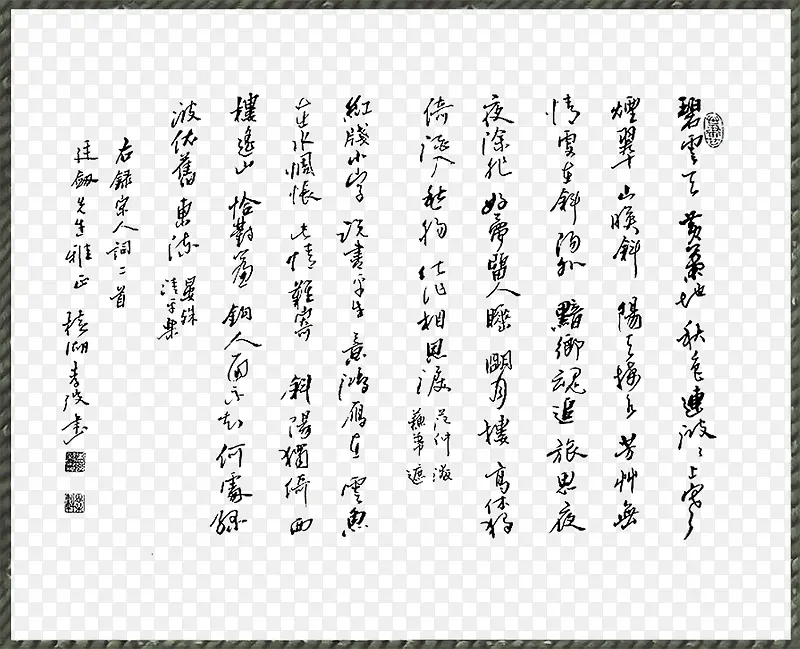 碧雲天黃葉地秋色連波〻上寒
煙翠山映斜陽天接水芳艸無
情更在斜陽外黯鄉魂追旅思夜
夜除非好夢留人睡明月樓高休獨
倚酒入愁腸化作相思淚
范仲淹
蘇幕遮
紅牋小字說盡平生意鴻雁在雲魚
在水惆悵此情難寄斜陽獨倚西
樓遙山恰對簾鉤人面不知何處綠
波依舊東流
晏殊
清平樂
右錄宋人詞二首
廷劔先生雅正 湖書